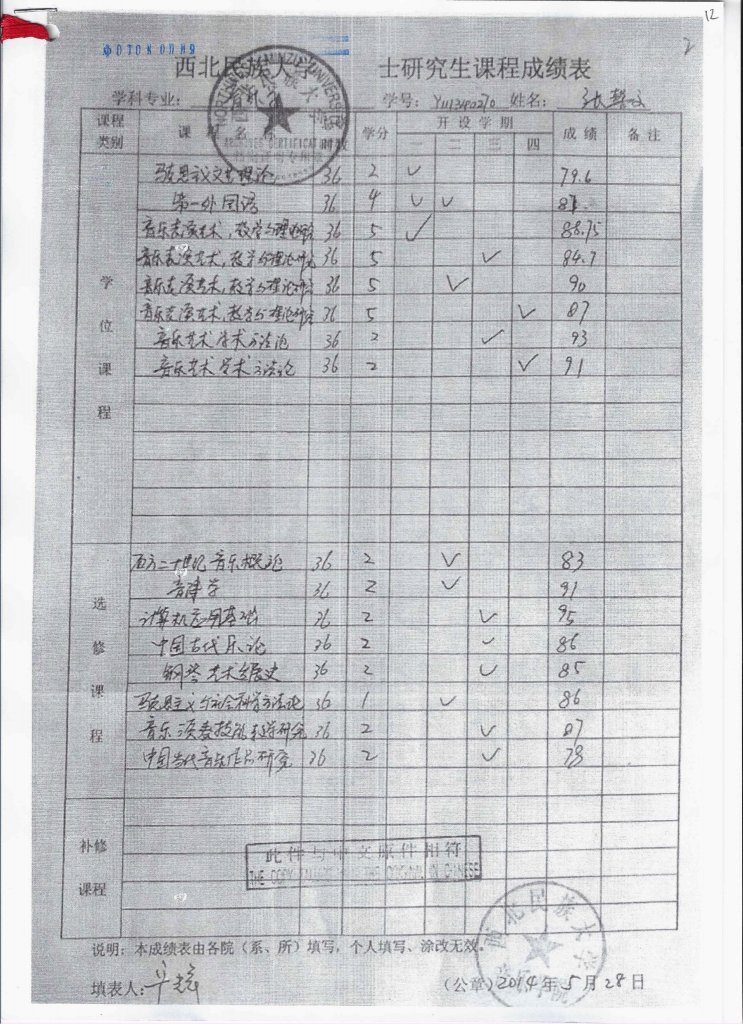 12
ФОТОКОПИЯ
2
西北民族大学 士研究生课程成绩表
学科专业： 音乐 学号：Y111340270 姓名：张
课程类别 课程名 学分 开设学期 成绩 备注
一 二 三 四
学位课程
马克思主义文艺理论 36 2 ✓ 79.6
第一外国语 36 4 ✓ ✓ 81.
音乐表演艺术，教学与理论研究 36 5 ✓ 88.75
音乐表演艺术，教学与理论研究 36 5 ✓ 84.7
音乐表演艺术，教学与理论研究 36 5 ✓ 90
音乐表演艺术，教学与理论研究 36 5 ✓ 87
音乐艺术学术方法论 36 2 ✓ 93
音乐艺术学术方法论 36 2 ✓ 91
选修课程
西方二十世纪音乐概论 36 2 ✓ 83
音律学 36 2 ✓ 91
计算机应用基础 36 2 ✓ 95
中国古代乐论 36 2 ✓ 86
钢琴艺术发展史 36 2 ✓ 85
马克思主义与社会科学方法论 36 1 ✓ 86
音乐演奏技能教学研究 36 2 ✓ 87
中国当代音乐作品研究 36 2 ✓ 78
补修课程
此件与中文原件相符
THE COPY THE ORIGINAL IN CHINESE
西北民族大学
说明：本成绩表由各院（系、所）填写，个人填写、涂改无效。
填表人： （公章）2014年5月28日